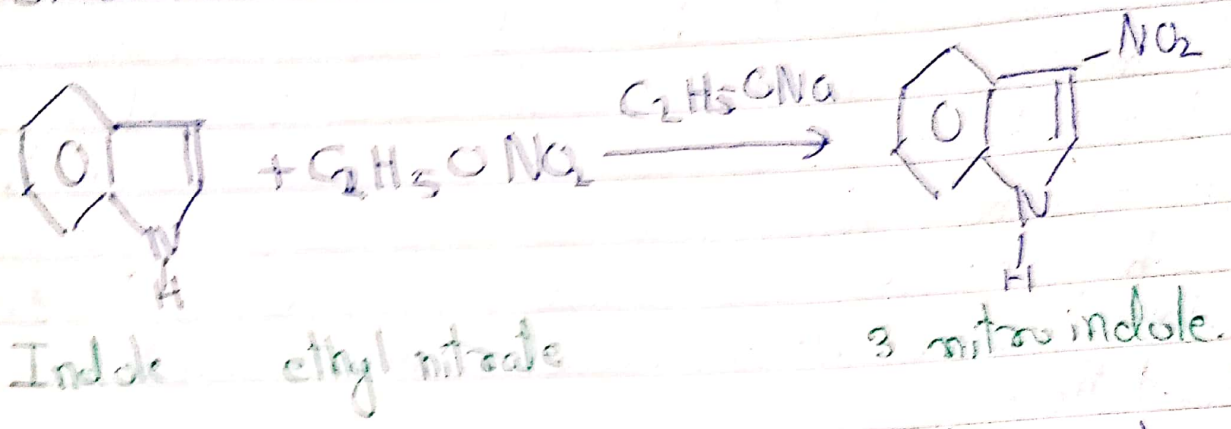 NO2
C2H5ONa
+ C2H5ONO2
N
H
N
H
Indole ethyl nitrate 3 nitro indole.